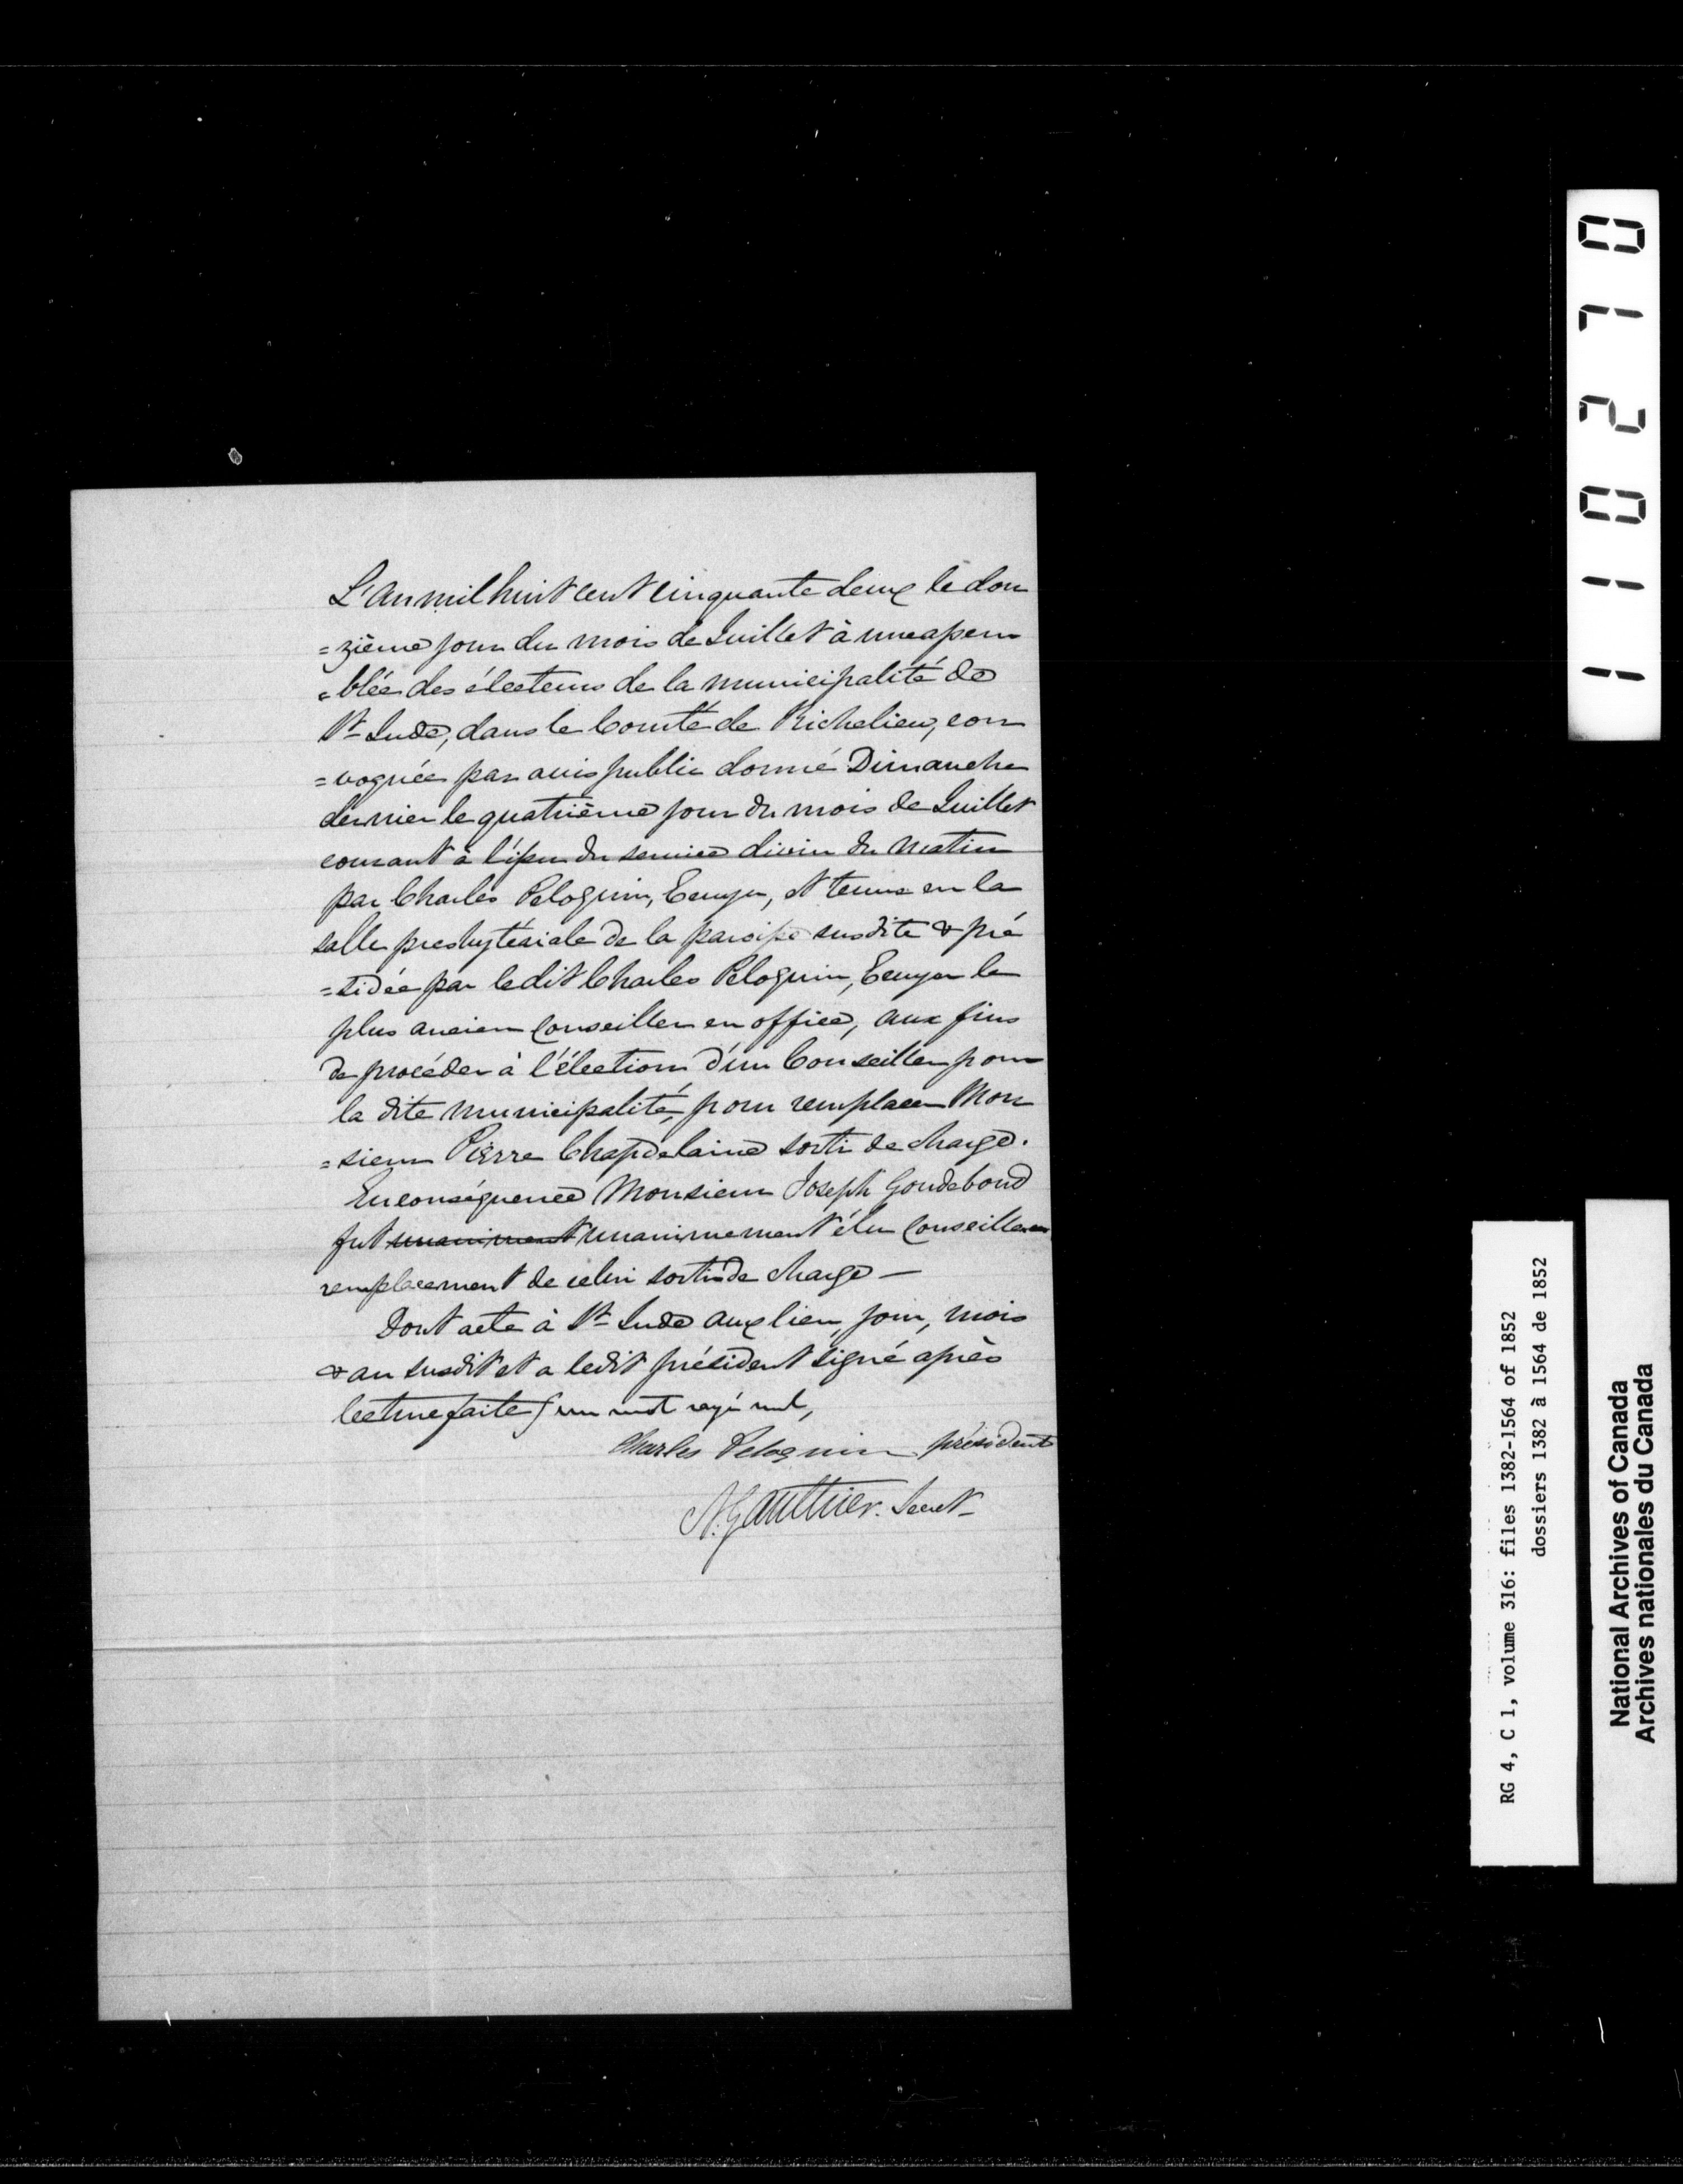 L'an mil huit cent cinquante deux le dou
=zième jour du mois de Juillet à une assem
=blée des électeurs de la municipalité de
St Jude, dans le Comté de Richelieu, con
=voquée par avis public donné Dimanche
dernier le quatrième jour du mois de Juillet
courant à l'issu du service divin du matin
par Charles Peloquin, Ecuyer, et tenue en la
salle presbytériale de la paroisse susdite & pré
=sidée par ledit Charles Peloquin, Ecuyer le
plus ancien Conseiller en office, aux fins
de procéder à l'élection d'un Conseiller pour
la dite municipalité, pour remplacer Mon
=sieur Pierre Chapdelaine sorti de charge.
En conséquence Monsieur Joseph Goudebond
fut unaniment unanimement élu Conseiller en
remplacement de celui sorti de charge —
Dont acte à St Jude aux lieu, jour, mois
& an susdit et a ledit président signé après
lecture faite / un mot rayé nul,
Charles Peloquin président
N. Gauthier. Secrét
110270
RG 4, C 1, volume 316: files 1382-1564 of 1852
dossiers 1382 à 1564 de 1852
National Archives of Canada
Archives nationales du Canada